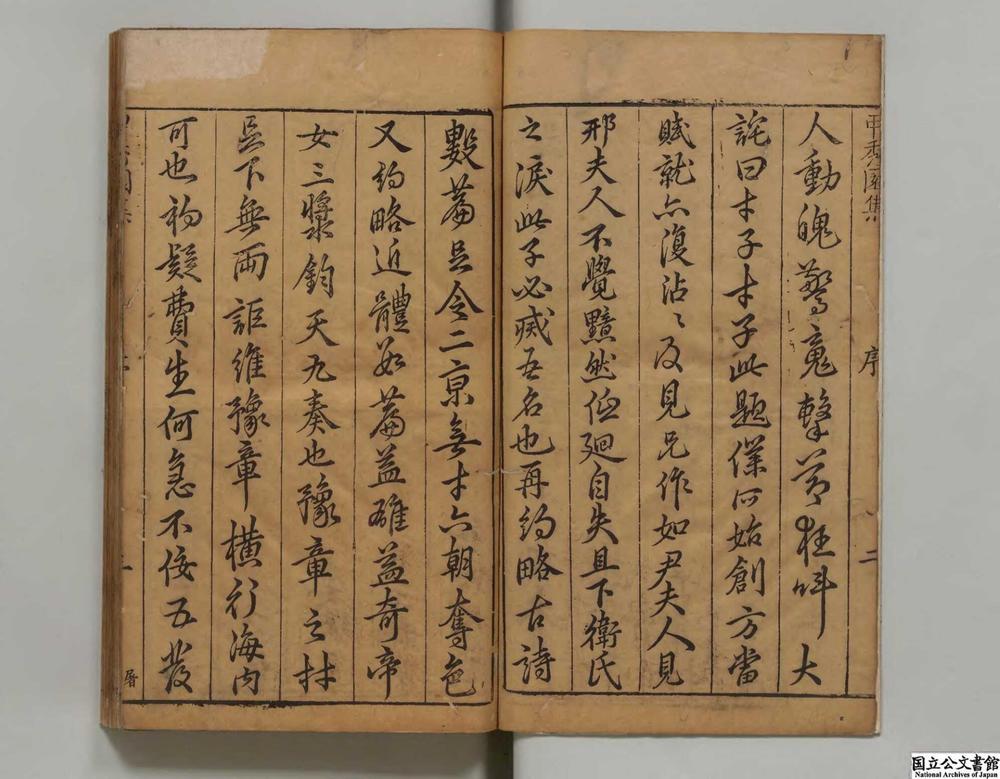 甲秀園集
序
二
人動魄驚鬼擊節狂叫大
詫曰才子才子此題僕所始創方當
賦就亦復沾〻及見兄作如尹夫人見
邢夫人不覺黯然低廻自失且下衛氏
之淚此子必滅吾名也再約略古詩
數篇足令二京無才六朝奪色
又約略近體如篇益雄益奇帝
女三漿鈞天九奏也豫章之材
吳下無兩詎維豫章橫行海內
可也初疑費生何急不佞五發
序
二
屠
国立公文書館
National Archives of Japan